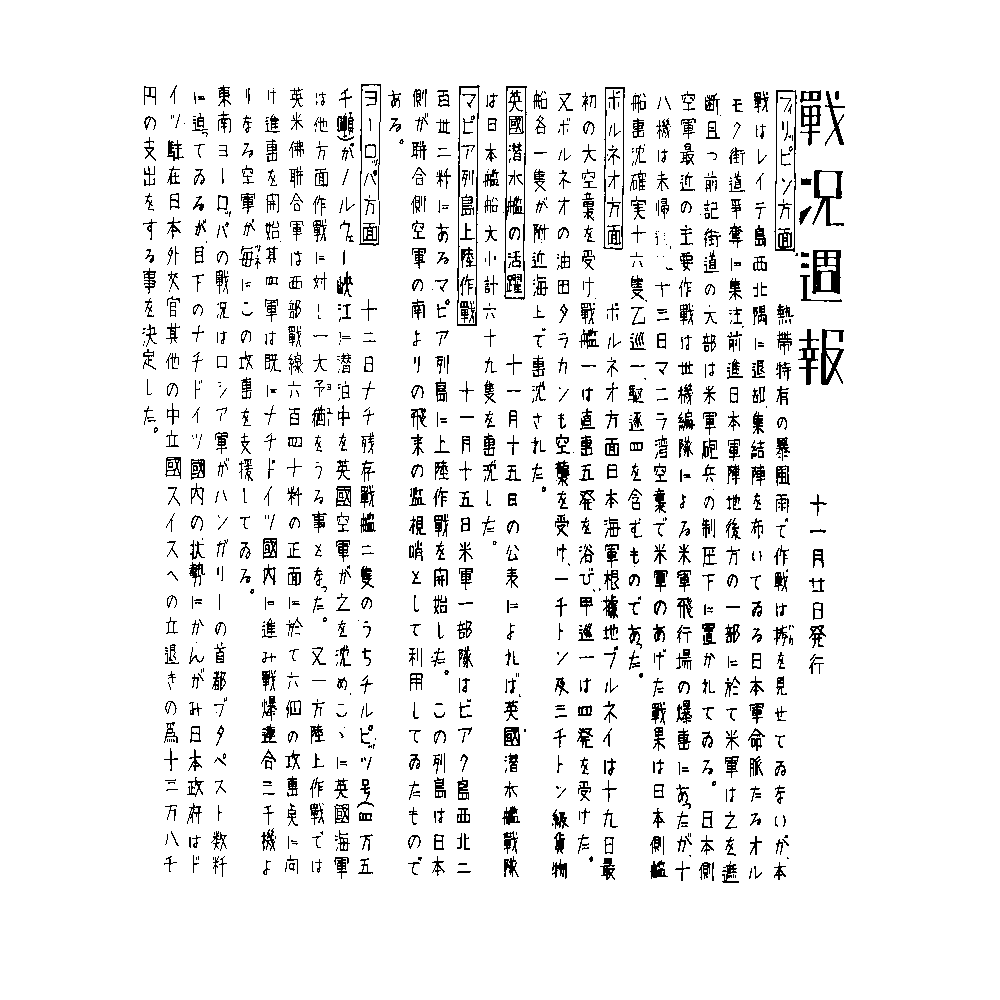 戰況週報
十一月廿日発行
フィリッピン方面 熱帶特有の暴風雨で作戰は捗を見せてゐないが、本
戰はレイテ島西北隅に退却、集結陣を布いてゐる日本軍命脈たるオル
モク街道爭奪に集注、前進日本軍陣地後方の一部に於て米軍は之を遮
断且つ前記街道の大部は米軍砲兵の制圧下に置かれてゐる。日本側
空軍最近の主要作戰は卅機編隊による米軍飛行場の爆擊にあったが、十
八機は未帰 十三日マニラ湾空襲で米軍のあげた戰果は日本側艦
船擊沈確実十六隻、乙巡一、駆逐四を含むものであった。
ボルネオ方面 ボルネオ方面日本海軍根據地ブルネイは十九日最
初の大空襲を受け、戰艦一は直擊五発を浴び、甲巡一は四発を受けた。
又ボルネオの油田タラカンも空襲を受け、一千トン及三千トン級貨物
船各一隻が附近海上で擊沈された。
英國潜水艦の活躍 十一月十五日の公表によれば、英國潜水艦戰隊
は日本艦船大小計六十九隻を擊沈した。
マピア列島上陸作戰 十一月十五日米軍一部隊はビアク島西北二
百廿二粁にあるマピア列島に上陸作戰を開始した。この列島は日本
側が聯合側空軍の南よりの飛来の監視哨として利用してゐたもので
ある。
ヨーロッパ方面 十二日ナチ残存戰艦二隻のうちチルピッツ号(四万五
千噸)がノルウェー峡江に潜泊中を英國空軍が之を沈め、こゝに英國海軍
は他方面作戰に対し一大予猶をうる事となった。又一方陸上作戰では
英米佛聯合軍は西部戰線六百四十粁の正面に於て六個の攻擊点に向
け進擊を開始、其四軍は既にナチドイツ國内に進み戰爆連合三千機よ
りなる空軍が毎にこの攻擊を支援してゐる。
東南ヨーロッパの戰況はロシア軍がハンガリーの首都ブタペスト数粁
に迫ってゐるが、目下のナチドイツ國内の状勢にかんがみ日本政府はド
イツ駐在日本外交官其他の中立國スイスへの立退きの爲十三万八千
円の支出をする事を決定した。